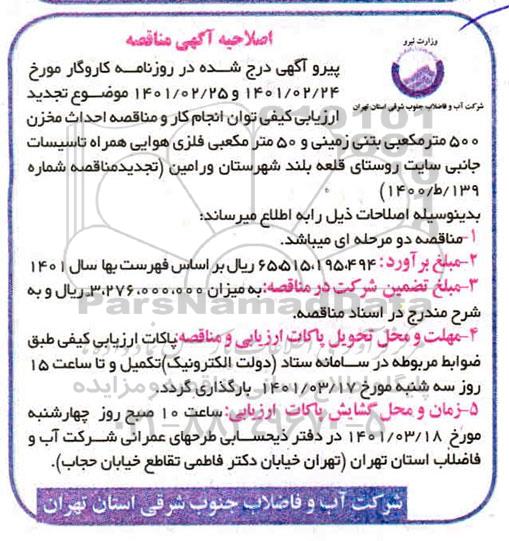 اصلاحیه آگهی مناقصه
وزارت نیرو
شرکت آب و فاضلاب جنوب شرقی استان تهران
پیرو آگهی درج شده در روزنامه کاروگار مورخ
۱۴۰۱/۰۲/۲۴ و ۱۴۰۱/۰۲/۲۵ موضوع تجدید
ارزیابی کیفی توان انجام کار و مناقصه احداث مخزن
۵۰۰ مترمکعبی بتنی زمینی و ۵۰ متر مکعبی فلزی هوایی همراه تاسیسات
جانبی سایت روستای قلعه بلند شهرستان ورامین (تجدیدمناقصه شماره
۱۳۹/ط/۱۴۰۰)
بدینوسیله اصلاحات ذیل رابه اطلاع میرساند:
۱-مناقصه دو مرحله ای میباشد.
۲-مبلغ برآورد: ۶۵،۵۱۵،۱۹۵،۴۹۴ ریال بر اساس فهرست بها سال ۱۴۰۱
۳-مبلغ تضمین شرکت در مناقصه:به میزان ۳،۲۷۶،۰۰۰،۰۰۰ ریال و به
شرح مندرج در اسناد مناقصه.
۴-مهلت و محل تحویل پاکات ارزیابی و مناقصه:پاکات ارزیابی کیفی طبق
ضوابط مربوطه در سامانه ستاد (دولت الکترونیک)تکمیل و تا ساعت ۱۵
روز سه شنبه مورخ ۱۴۰۱/۰۳/۱۷ بارگذاری گردد.
۵-زمان و محل گشایش پاکات ارزیابی: ساعت ۱۰ صبح روز چهارشنبه
مورخ ۱۴۰۱/۰۳/۱۸ در دفتر ذیحسابی طرحهای عمرانی شرکت آب و
فاضلاب استان تهران (تهران خیابان دکتر فاطمی تقاطع خیابان حجاب).
شرکت آب و فاضلاب جنوب شرقی استان تهران
ParsNamadData